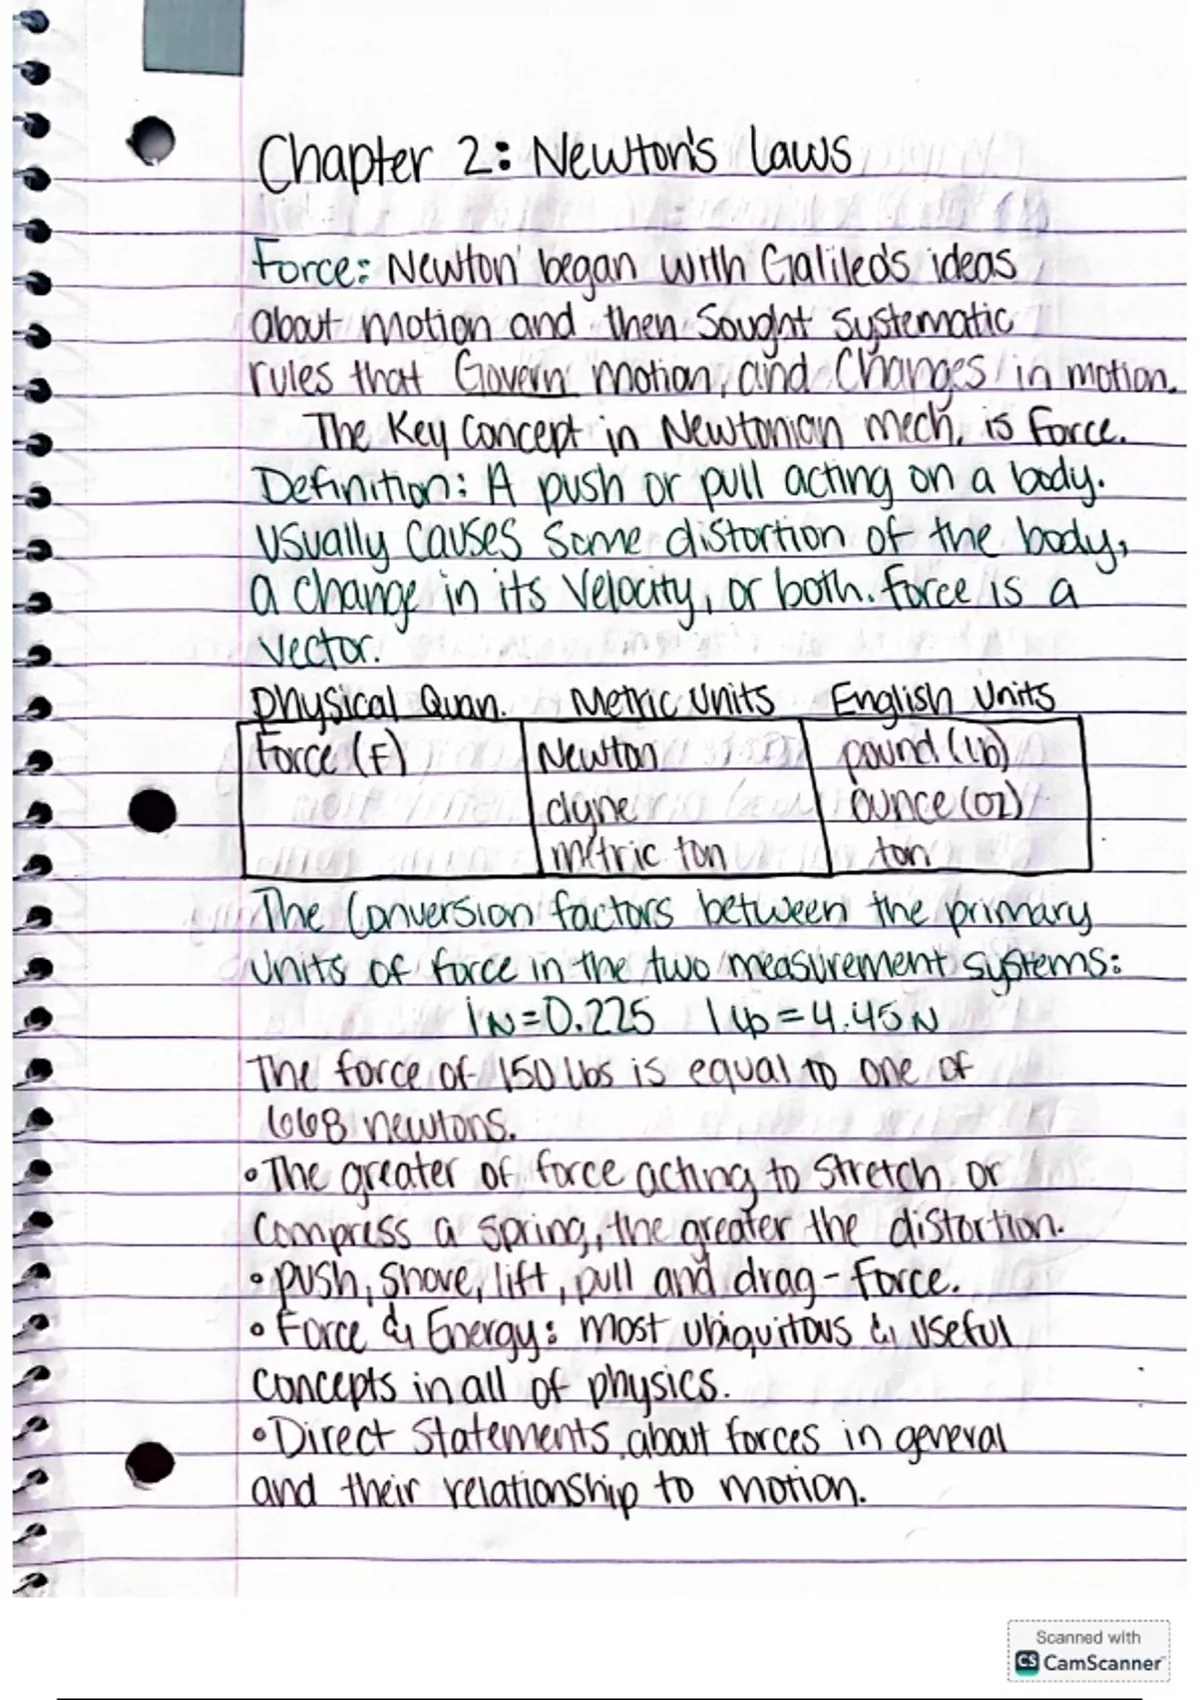 Chapter 2: Newton's Laws
Force: Newton began with Galileo's ideas
about motion and then sought systematic
rules that Govern motion, and Changes in motion.
The Key Concept in Newtonian mech. is force.
Definition: A push or pull acting on a body.
Usually Causes some distortion of the body,
a change in its velocity, or both. force is a
vector.
Physical Quan. Metric Units English Units
Force (F) Newton pound (lb)
dyne ounce (oz)
metric ton ton
The Conversion factors between the primary
Units of force in the two measurement systems:
1N=0.225 1 lb=4.45N
The force of 150 lbs is equal to one of
668 newtons.
•The greater of force acting to stretch or
compress a spring, the greater the distortion.
•push, shove, lift, pull and drag - Force.
•Force & Energy: most ubiquitous & useful
concepts in all of physics.
•Direct Statements about forces in general
and their relationship to motion.
Scanned with
CS CamScanner